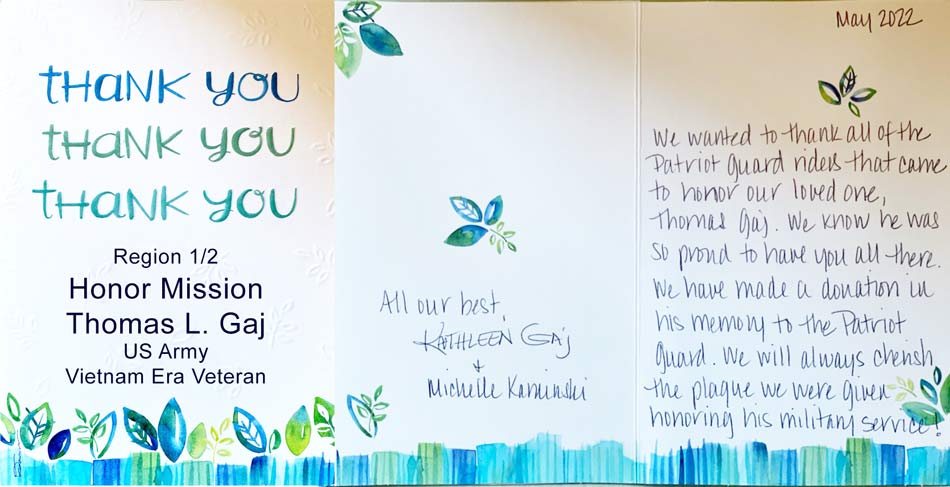 THANK YOU
THANK YOU
THANK YOU
Region 1/2
Honor Mission
Thomas L. Gaj
US Army
Vietnam Era Veteran
All our best,
KATHLEEN GAJ
+
Michelle Kaminski
May 2022
We wanted to thank all of the
Patriot Guard riders that came
to honor our loved one,
Thomas Gaj. We know he was
so proud to have you all there.
We have made a donation in
his memory to the Patriot
Guard. We will always cherish
the plaque we were given
honoring his military service!